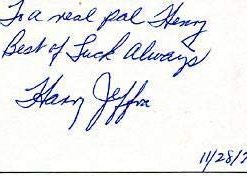 To a real pal Henry
Best of Luck Always
Harry Jeffra
11/28/7